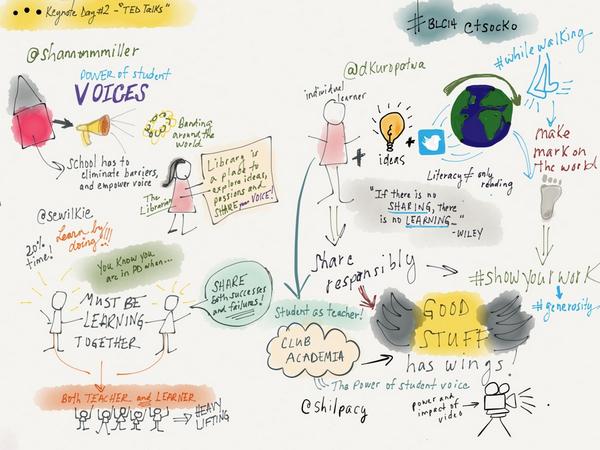 Keynote Day #2 - "TED Talks"
@shannonmmiller
POWER of student
VOICES
Banding
around the
world
School has to
eliminate barriers,
and empower voice
The
Librarian
Library is
a place to
explore ideas,
passions and
SHARE your VOICE!
@sewilkie
20%
time!
Learn by
doing!!!
You know you
are in PD when...
MUST BE
LEARNING
TOGETHER
SHARE
both successes
and failures!
Both TEACHER and LEARNER
HEAVY
LIFTING
#BLC14 ctsocko
@dkuropatwa
individual
learner
+
ideas
+
Literacy ≠ only
reading
"If there is no
SHARING, there
is no LEARNING."
-WILEY
#whilewalking
make
mark on
the world
Share
responsibly
#showyourwork
#generosity
Student as teacher!
GOOD
STUFF
has wings!
CLUB
ACADEMIA
The Power of student voice
@shilpacy
power and
impact of
video